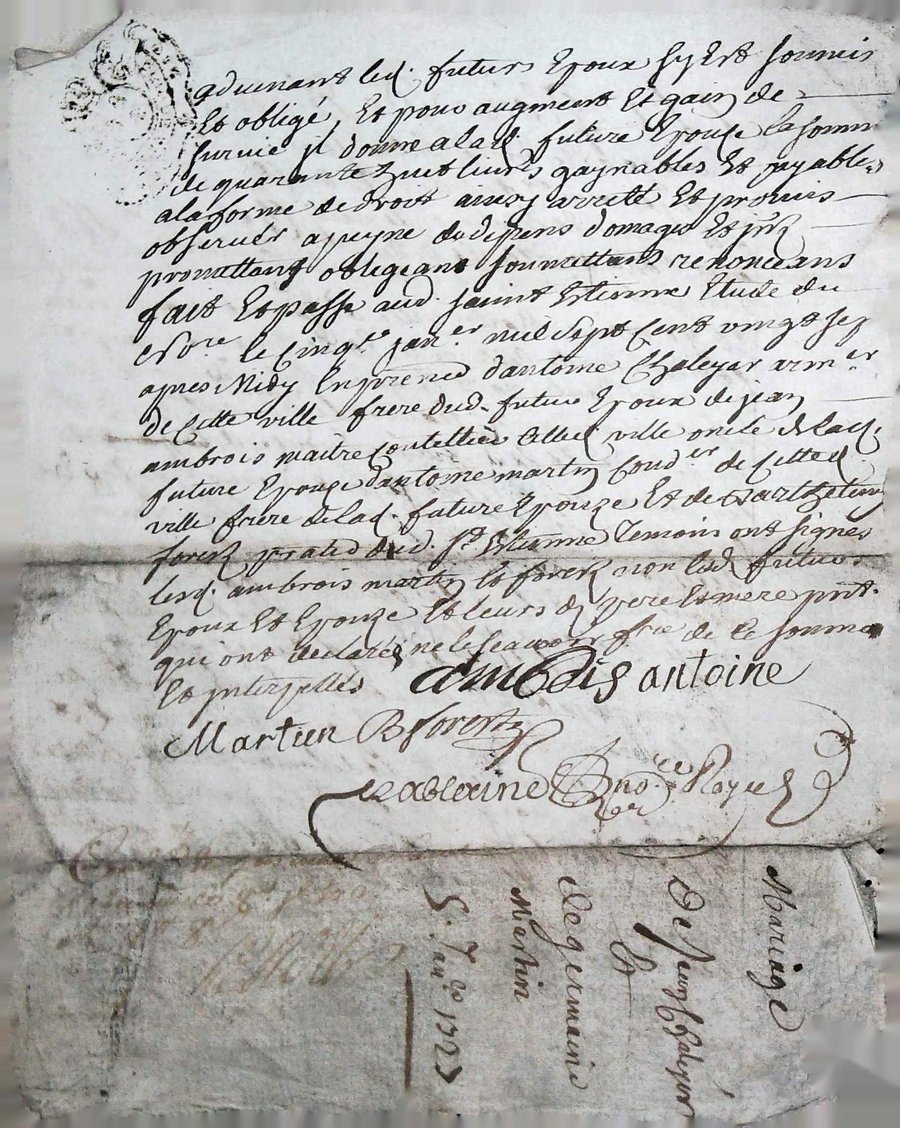 aduenant led. futurs Epoux sy Est soumis
Et obligé, Et pour augment Et gain de
survie jl donne alad. future Epouze la som
de quarante huit livres gaynables Et payables
alaforme de droit ainsy arreté Et promis
observer apeyne dedepens domages Et
promettant obligeant soumettans renonceans
fait Et passé aud. saint Etienne Etude du
le cinq.e jan.er mil sept cent vingt sep
apres Midy En dantoine Chaleyer arm.er
de Cette ville frere dud. futur Epoux de jean
ambrois maitre coutellier ville oncle de lad.
future Epouze dantoine martin de Cetted.
ville frere delad. future Epouze Et de
forest dud. St Etienne temoins ont signés
lesd. ambrois martin Et forest non lesd. futurs
Epoux Et Epouze Et leurs d. pere Et mere pnt.
qui ont declarés ne le scavoir de ce
Et jnterpellés ambrois antoine
Martien B forest
Royal
Mariage
De Jean Chaleyer
Et
de germaine
Martin
5. Jan.er 1727